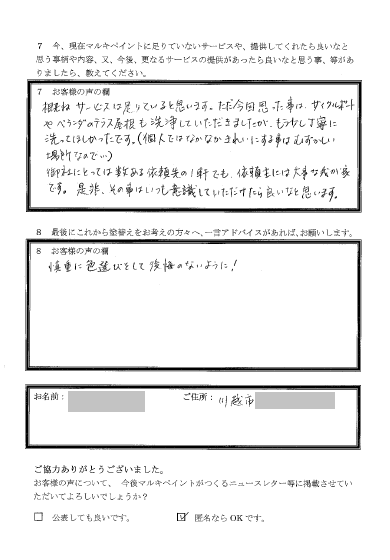 7 今、現在マルキペイントに足りていないサービスや、提供してくれたら良いなと
思う事柄や内容、又、今後、更なるサービスの提供があったら良いなと思う事、等があ
りましたら、教えてください。
7 お客様の声の欄
概ね サービスは足りていると思います。ただ今回思った事は、サイクルポート
やベランダのテラス屋根も洗浄していただきましたが、もう少し丁寧に
洗ってほしかったです。(個人ではなかなかきれいにする事はむずかしい
場所なので…)
御社にとっては数ある依頼先の1軒でも、依頼主には大事な我が家
です。是非、その事はいつも意識していただけたら良いなと思います。
8 最後にこれから塗替えをお考えの方々へ、一言アドバイスがあれば、お願いします。
8 お客様の声の欄
慎重に色選びをして後悔のないように!
お名前:
ご住所: 川越市
ご協力ありがとうございました。
お客様の声について、今後マルキペイントがつくるニュースレター等に掲載させてい
ただいてよろしいでしょうか?
□ 公表しても良いです。 ☑ 匿名なら OK です。